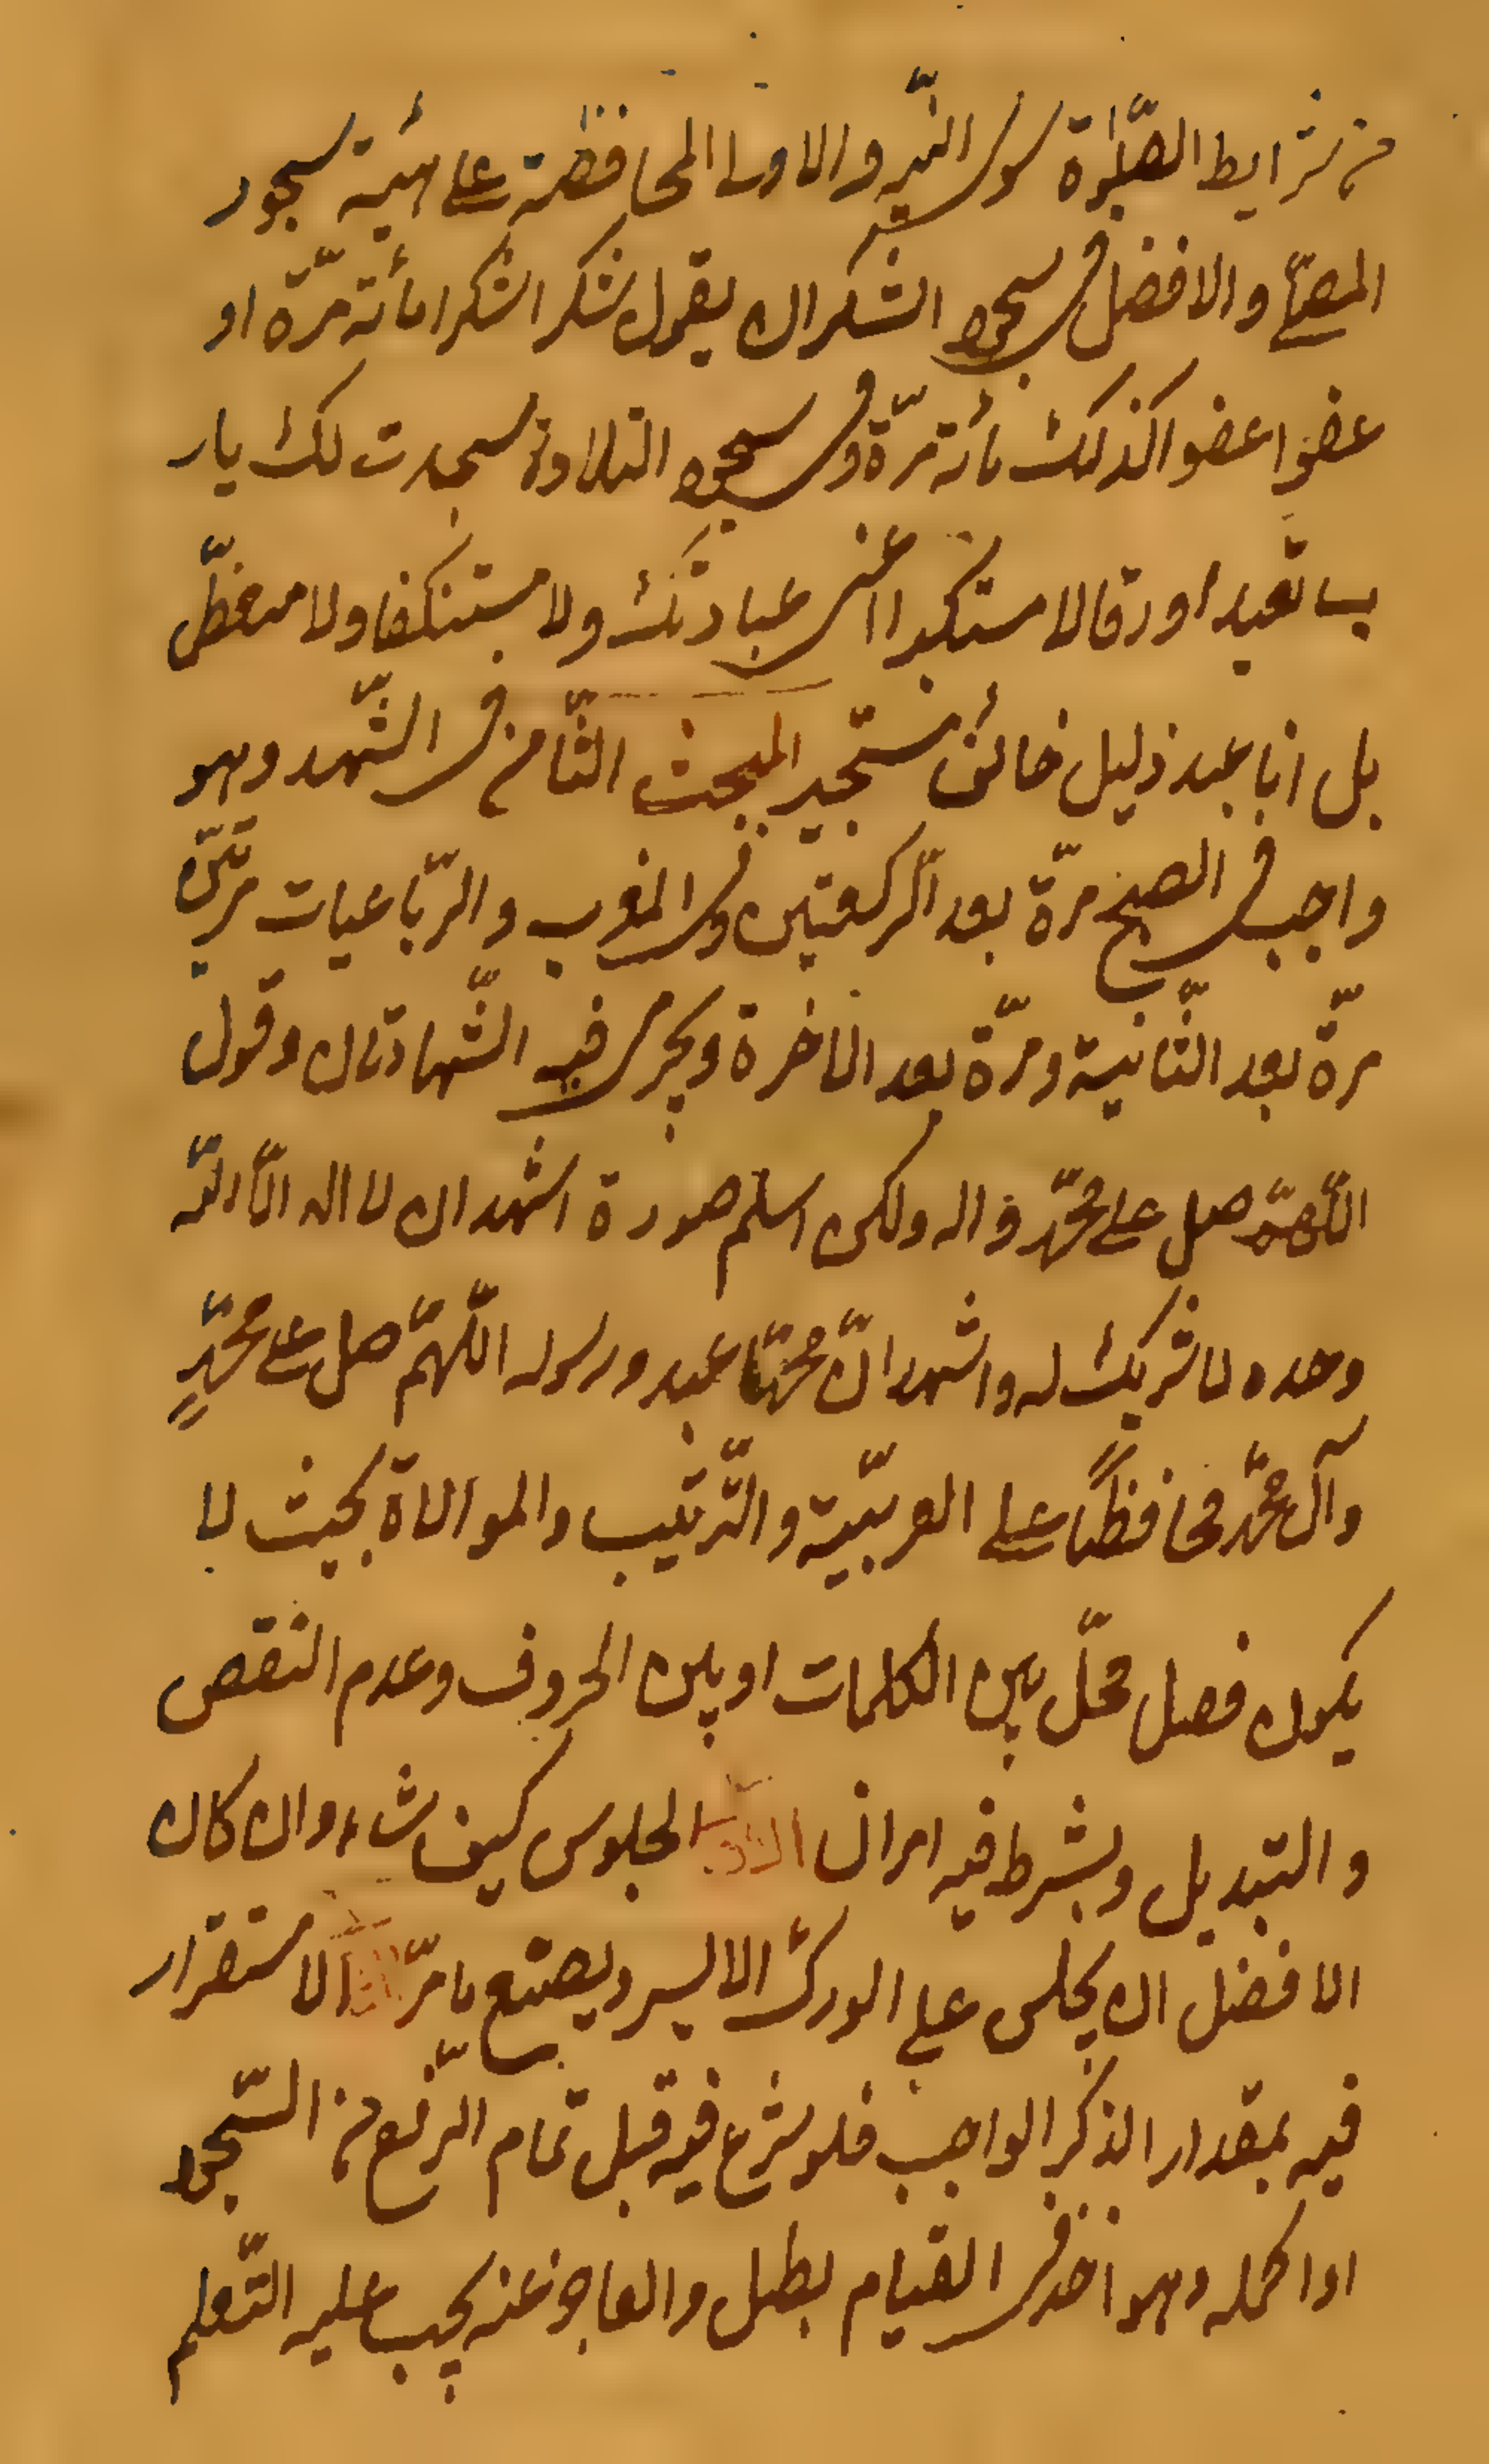 من شرايط الصّلوة سوى النيّة والاولى المحافظة على هيئة سجود
المصلّي والافضل في سجود الشكر ان يقول شكرا شكرا مأئة مرّة او
عفوا عفوا كذلك مائة مرّة وفي سجود التلاوة سجدت لك يار
ب تعبدا ورقا لا مستكبرا عن عبادتك ولا مستنكفا ولا متعظّم
بل انا عبد ذليل خائف مستجير المبحث الثّامن في التّشهد وهو
واجب في الصبح مرّة بعد الرّكعتين وفي المغرب والرّباعيات مرّتين
مرّة بعد الثّانية ومرّة بعد الاخرة ويجزي فيه الشّهادتان وقول
اللّهمّ صل على محمّد واله ولكن اسلم صورة اشهد ان لا اله الّا اللّه
وحده لا شريك له واشهد انّ محمّدا عبده ورسوله اللّهمّ صل على محمّدٍ
وآل محمّد محافظًا على العربيّة والتّرتيب والموالاة بحيث لا
يكون فصل مخلّ بين الكلمات او بين الحروف وعدم النقص
والتبديل ويشترط فيه امران الاوّل الجلوس كيف شاء وان كان
الافضل ان يجلس على الورك الايسر ويصنع ما مرّ الثاني الاستقرار
فيه بمقدار الذكر الواجب فلو شرع فيه قبل تمام الرّفع من السّجود
او اكمله وهو اخذ في القيام بطل والعاجز عنه يجب عليه التّعلم